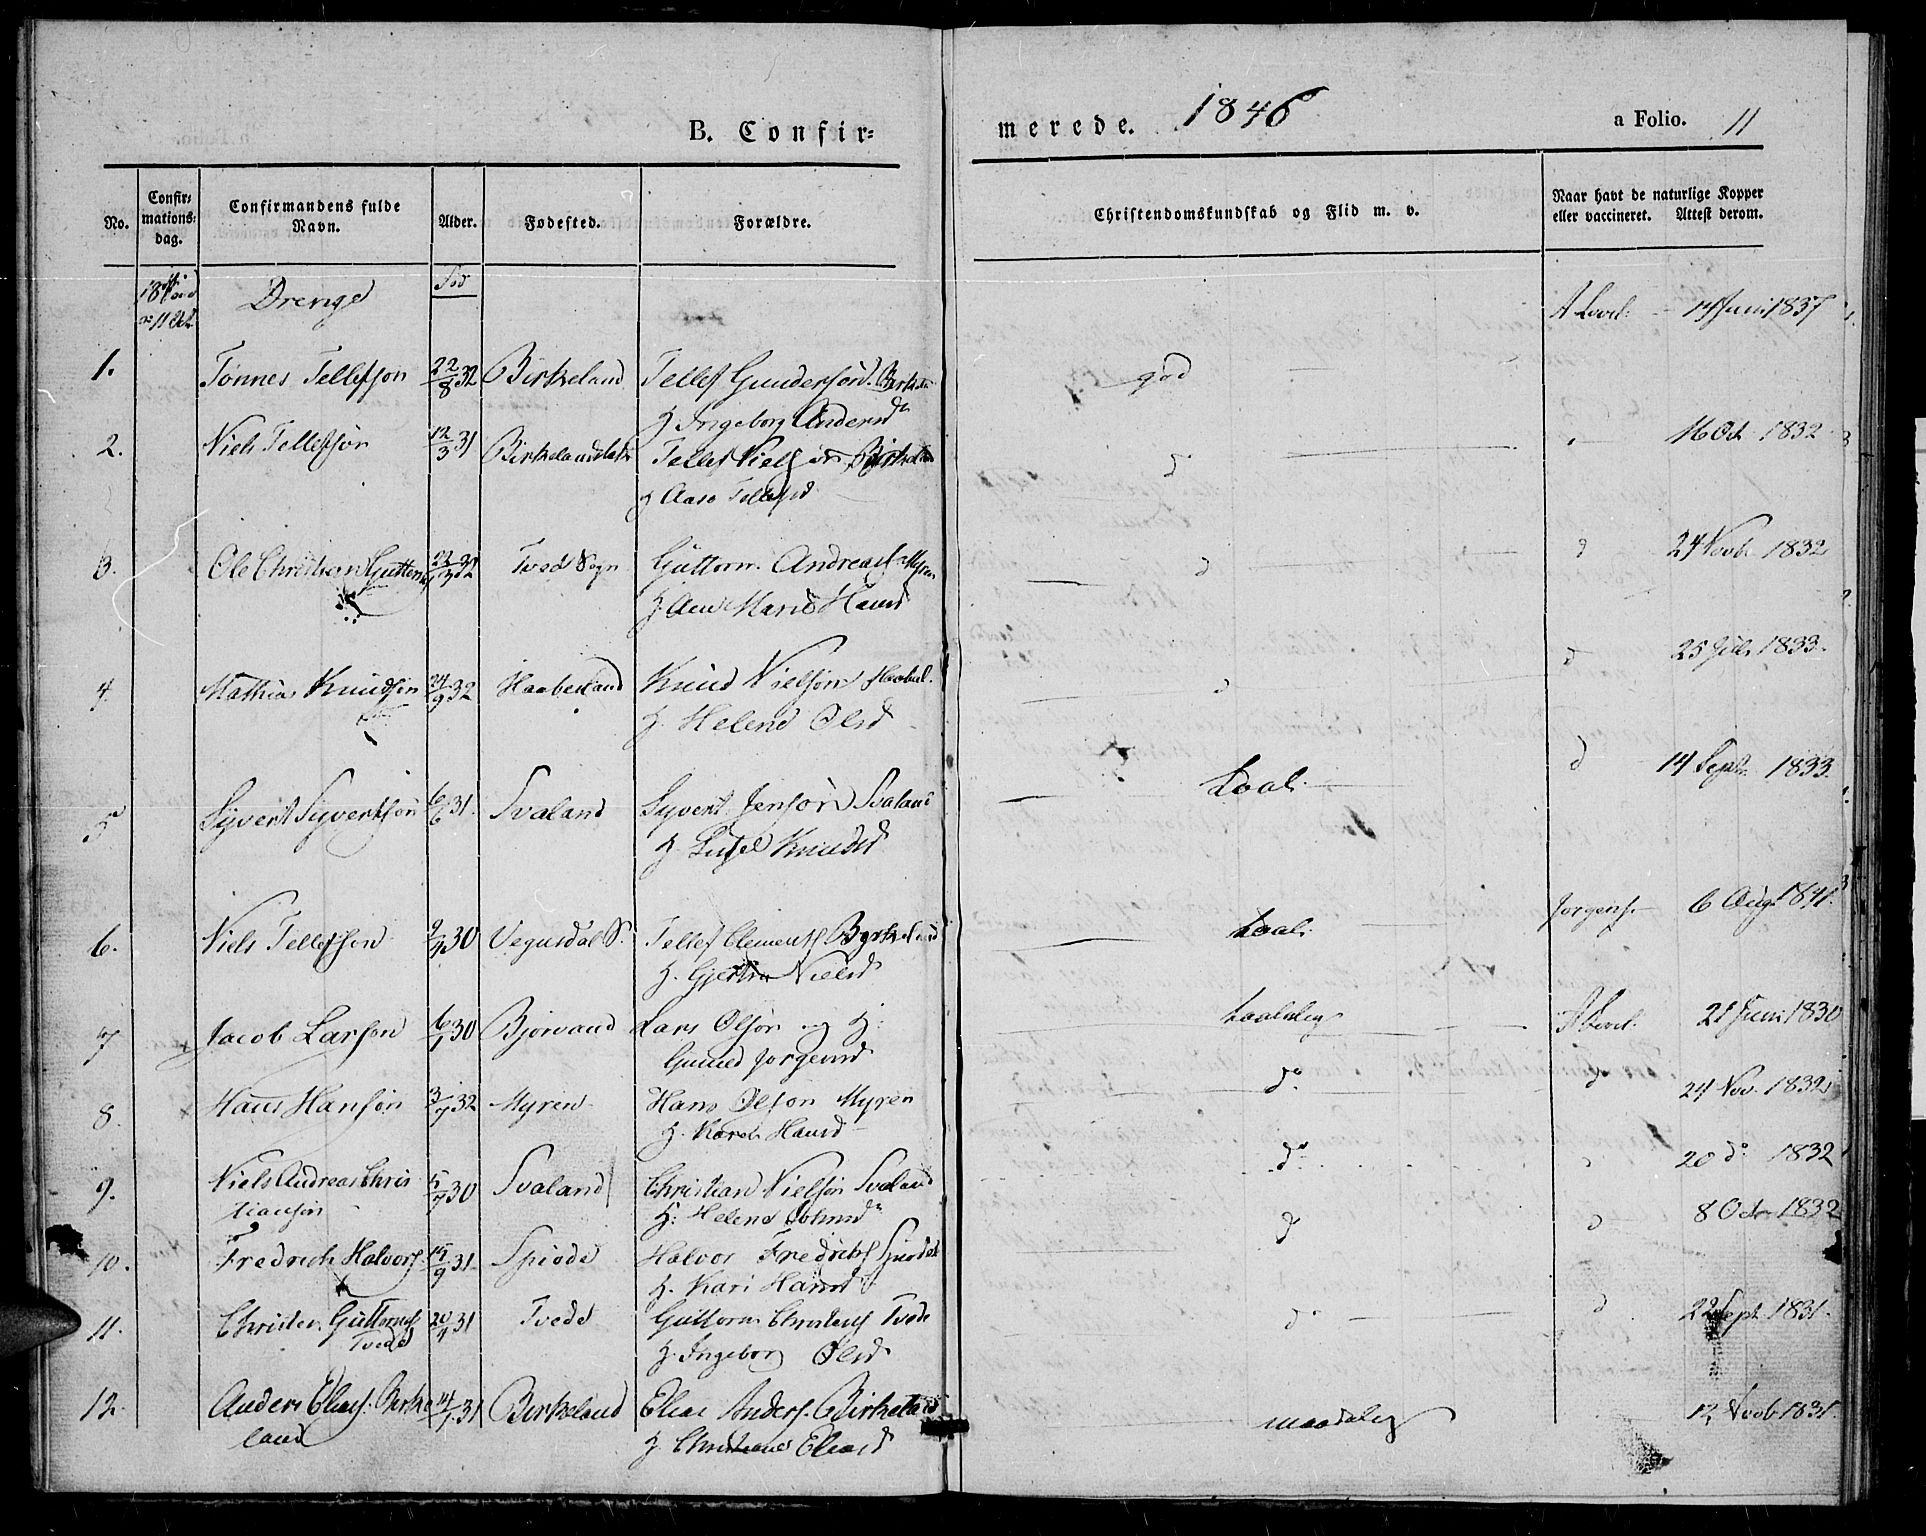 B. Confir=
merede. 1846
a Folio. 11
No.
Confir=
mations=
dag.
Confirmandens fulde
Navn.
Alder.
Fødested.
Forældre.
Christendomskundskab og Flid m. v.
Naar havt de naturlige Kopper
eller vaccineret. Attest derom.
Drenge
Fød
1. Tønnes Tellefsøn 22/8 32 Birkeland Tellef Gundersøn
H Ingeborg Andersd
god 14 Juni 1837
2. Niels Tellefsøn 12/3 31 Tellef Nielsøn
H Aase Tellefsd
d 16 Oct 1832
3. Ole Christian Guttorms Tved Sogn Guttorm Andreass Myren
H. Ane Marie Hansd
d d 24 Novb 1832
4. Mathias Knudsøn 24/9 32 Haaberland Knud Nielsøn
H. Helene Olsd
d d 1833.
5 Syvert Syvertsøn 6/6 31. Svaland Syvert Jensøn Svaland
H. Knudsd
d 14 Sept. 1833.
6. Niels Tellefsøn 30 Vegusdal S. Tellef Clements
H. Nielsd
Jørgens. 6 Aug 1841.
7 Jacob Larsøn 6/1 30 Bjørvand Lars Olsøn og H:
Gunild Jørgensd
21 Juni 1830
8. Hans Hansøn 3/7 32 Myren Hans Olsøn Myren
H. Karen Hansd
do d 24 Nov. 1832
9. Niels Andreas Chris
tiansøn
5/7 30 Svaland Christian Nielsøn Svaland
H: Helene
do 20 do 1832
10. Fredrich Halvors. 15/9 31 Spiode Halvor Fredriks
H. Kari Hansd
d d 8 Oct 1832
11. Christen Guttorms
Tvede
31 Tvede Guttorm Christens Tvede
H. Ingeborg Olsd
do d 22 Sept 1831.
12. Anders Elias. Birke
land
31 Birkeland Elias Anders. Birkeland
H Christiane Eliasd
maadelig 12 Novb 1831.